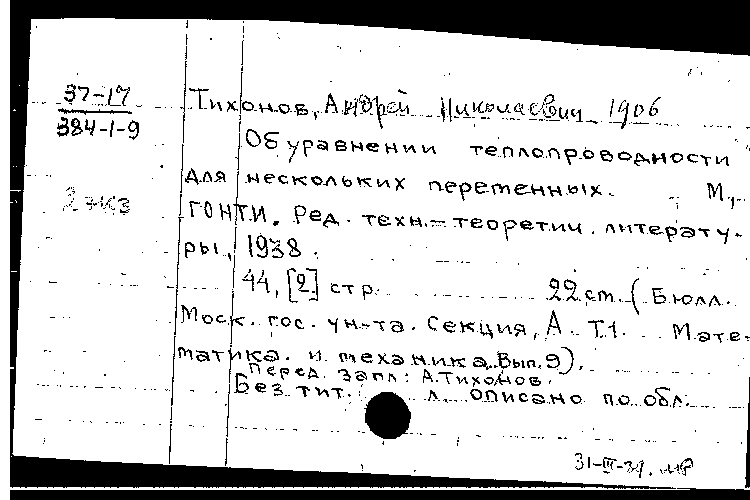 37-17
384-1-9
2 экз
Тихонов, Андрей Николаевич 1906
Об уравнении теплопроводности
для нескольких переменных. М.,
ГОНТИ. Ред. техн.-теоретич. литерату-
ры, 1938.
44, [2] стр. 22 ст. (Бюлл.
Моск. гос. ун-та. Секция, А. Т.1. Мате-
матика и механика. Вып. 9).
Перед загл: А. Тихонов.
Без тит. л. описано по обл.
31-III-39. МР